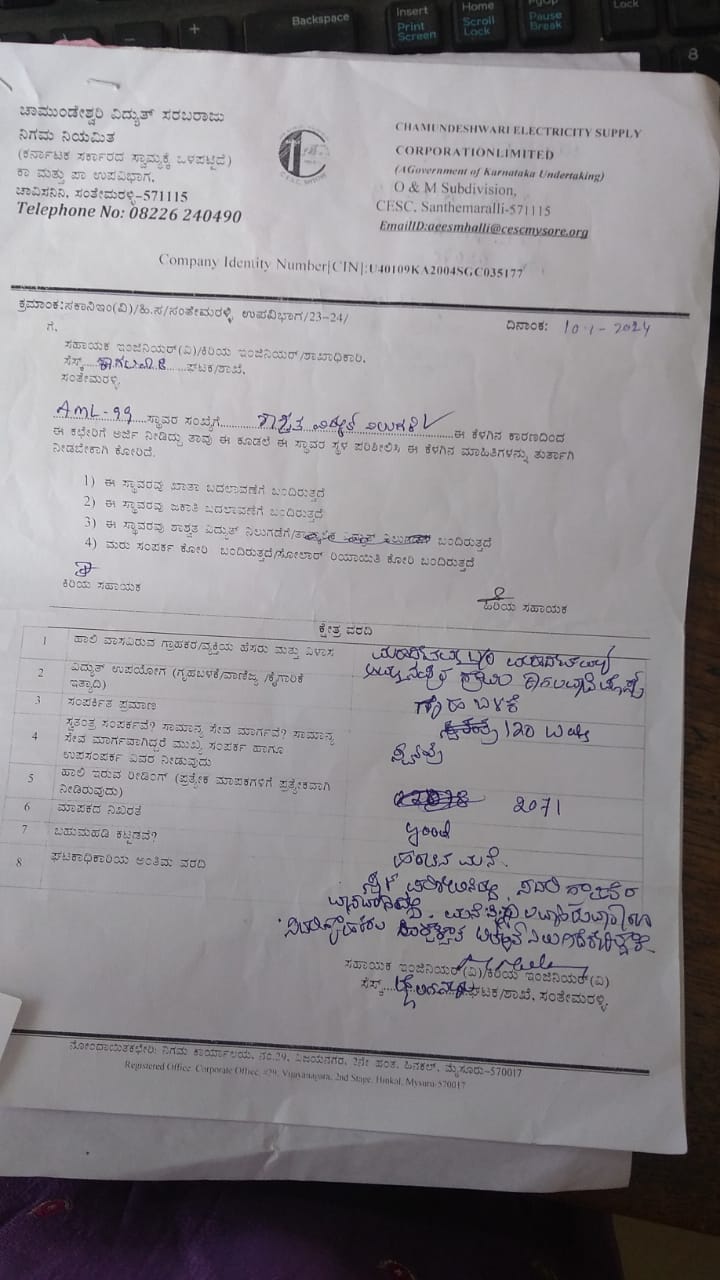 Backspace
Insert
Print
Screen
Home
Scroll
Lock
PgUp
Pause
Break
Lock
+
8
ಚಾಮುಂಡೇಶ್ವರಿ ವಿದ್ಯುತ್ ಸರಬರಾಜು
ನಿಗಮ ನಿಯಮಿತ
(ಕರ್ನಾಟಕ ಸರ್ಕಾರದ ಸ್ವಾಮ್ಯಕ್ಕೆ ಒಳಪಟ್ಟಿದೆ)
ಕಾ ಮತ್ತು ಪಾ ಉಪವಿಭಾಗ,
ಚಾವಿಸನಿನಿ, ಸಂತೇಮರಳ್ಳಿ-571115
Telephone No: 08226 240490
CHAMUNDESHWARI ELECTRICITY SUPPLY
CORPORATIONLIMITED
(AGovernment of Karnataka Undertaking)
O & M Subdivision,
CESC, Santhemaralli-571115
EmailID:aeesmhalli@cescmysore.org
Company Identity Number[CIN]:U40109KA2004SGC035177
ಕ್ರಮಾಂಕ:ಸಕಾನಿಇಂ(ವಿ)/ಹಿ.ಸ/ಸಂತೇಮರಳ್ಳಿ ಉಪವಿಭಾಗ/23-24/
ದಿನಾಂಕ: 10-1-2024
ಗೆ,
ಸಹಾಯಕ ಇಂಜಿನಿಯರ್(ವಿ)/ಕಿರಿಯ ಇಂಜಿನಿಯರ್/ಶಾಖಾಧಿಕಾರಿ,
ಸೆಸ್ಕ್ ಘಟಕ/ಶಾಖೆ,
ಸಂತೇಮರಳ್ಳಿ.
AML-99 ಸ್ಥಾವರ ಸಂಖ್ಯೆಗೆ ಶಾಶ್ವತ ವಿದ್ಯುತ್ ನಿಲುಗಡೆ ಈ ಕೆಳಗಿನ ಕಾರಣದಿಂದ
ಈ ಕಛೇರಿಗೆ ಅರ್ಜಿ ನೀಡಿದ್ದು ತಾವು ಈ ಕೂಡಲೆ ಈ ಸ್ಥಾವರ ಸ್ಥಳ ಪರಿಶೀಲಿಸಿ ಈ ಕೆಳಗಿನ ಮಾಹಿತಿಗಳನ್ನು ತುರ್ತಾಗಿ
ನೀಡಬೇಕಾಗಿ ಕೋರಿದೆ.
1) ಈ ಸ್ಥಾವರವು ಖಾತಾ ಬದಲಾವಣೆಗೆ ಬಂದಿರುತ್ತದೆ
2) ಈ ಸ್ಥಾವರವು ಜಕಾತಿ ಬದಲಾವಣೆಗೆ ಬಂದಿರುತ್ತದೆ
3) ಈ ಸ್ಥಾವರವು ಶಾಶ್ವತ ವಿದ್ಯುತ್ ನಿಲುಗಡೆಗೆ/ ಬಂದಿರುತ್ತದೆ
4) ಮರು ಸಂಪರ್ಕ ಕೋರಿ ಬಂದಿರುತ್ತದೆ/ಸೋಲಾರ್ ರಿಯಾಯಿತಿ ಕೋರಿ ಬಂದಿರುತ್ತದೆ
ಕಿರಿಯ ಸಹಾಯಕ
ಹಿರಿಯ ಸಹಾಯಕ
ಕ್ಷೇತ್ರ ವರದಿ
1 ಹಾಲಿ ವಾಸವಿರುವ ಗ್ರಾಹಕರ/ವ್ಯಕ್ತಿಯ ಹೆಸರು ಮತ್ತು ವಿಳಾಸ
2 ವಿದ್ಯುತ್ ಉಪಯೋಗ (ಗೃಹಬಳಕೆ/ವಾಣಿಜ್ಯ /ಕೈಗಾರಿಕೆ
ಇತ್ಯಾದಿ) ಗೃಹ ಬಳಕೆ
3 ಸಂಪರ್ಕಿತ ಪ್ರಮಾಣ 120
4 ಸ್ವತಂತ್ರ ಸಂಪರ್ಕವೆ? ಸಾಮಾನ್ಯ ಸೇವ ಮಾರ್ಗವೆ? ಸಾಮಾನ್ಯ
ಸೇವ ಮಾರ್ಗವಾಗಿದ್ದರೆ ಮುಖ್ಯ ಸಂಪರ್ಕ ಹಾಗೂ
ಉಪಸಂಪರ್ಕ ವಿವರ ನೀಡುವುದು
5 ಹಾಲಿ ಇರುವ ರೀಡಿಂಗ್ (ಪ್ರತ್ಯೇಕ ಮಾಪಕಗಳಿಗೆ ಪ್ರತ್ಯೇಕವಾಗಿ
ನೀಡಿರುವುದು) 2071
6 ಮಾಪಕದ ನಿಖರತೆ good
7 ಬಹುಮಹಡಿ ಕಟ್ಟಡವೆ? ಹಂಚಿನ ಮನೆ.
8 ಘಟಕಾಧಿಕಾರಿಯ ಅಂತಿಮ ವರದಿ
ಸಹಾಯಕ ಇಂಜಿನಿಯರ್(ವಿ)/ಕಿರಿಯ ಇಂಜಿನಿಯರ್(ವಿ)
ಸೆಸ್ಕ್ ಘಟಕ/ಶಾಖೆ, ಸಂತೇಮರಳ್ಳಿ.
ನೋಂದಾಯಿತಕಛೇರಿ: ನಿಗಮ ಕಾರ್ಯಾಲಯ, ನಂ.29, ವಿಜಯನಗರ, 2ನೇ ಹಂತ, ಹಿನಕಲ್, ಮೈಸೂರು-570017
Registered Office: Corporate Office, #29, Vijayanagara, 2nd Stage, Hinkal, Mysuru-570017